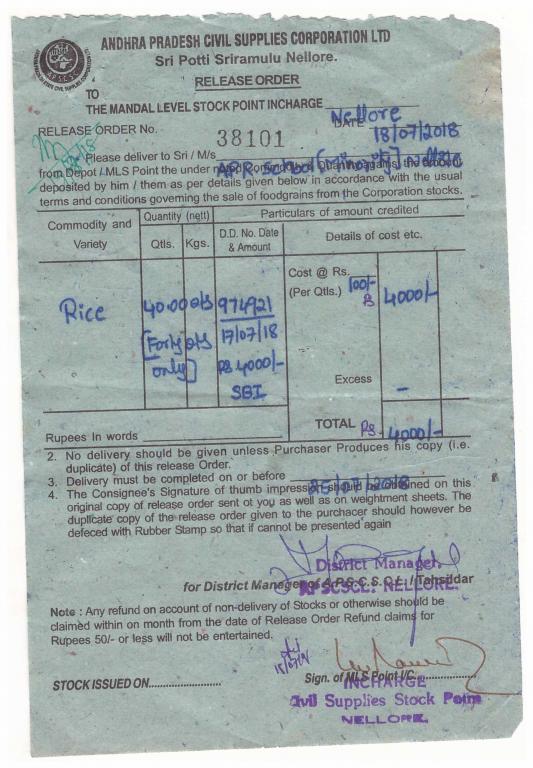 ANDHRA PRADESH CIVIL SUPPLIES CORPORATION LTD
Sri Potti Sriramulu Nellore.
RELEASE ORDER
TO
THE MANDAL LEVEL STOCK POINT INCHARGE Nellore
RELEASE ORDER No. 38101 DATE 18/07/2018
Please deliver to Sri / M/s APR School (Minority) Nellore
from Depot / MLS Point the under
deposited by him / them as per details given below in accordance with the usual
terms and conditions governing the sale of foodgrains from the Corporation stocks.
Commodity and Variety
Quantity (nett)
Qtls. Kgs.
Particulars of amount credited
D.D. No. Date & Amount
Details of cost etc.
Rice
40.00 qts
[Forty qts only]
974921
17/07/18
Rs 4000/-
SBI
Cost @ Rs. (Per Qtls.) 100/-
4000/-
Excess –
TOTAL Rs. 4000/-
Rupees In words
2. No delivery should be given unless Purchaser Produces his copy (i.e.
duplicate) of this release Order.
3. Delivery must be completed on or before 25/07/2018
4. The Consignee's Signature of thumb impression should be obtained on this
original copy of release order sent ot you as well as on weightment sheets. The
duplicate copy of the release order given to the purchacer should however be
defeced with Rubber Stamp so that if cannot be presented again
District Manager
APSCSCL. NELLORE.
for District Manager of A.P.S.C.S.C.L. / Tahsildar
Note : Any refund on account of non-delivery of Stocks or otherwise should be
claimed within on month from the date of Release Order Refund claims for
Rupees 50/- or less will not be entertained.
STOCK ISSUED ON
Sign. of MLS Point I/C.
INCHARGE
Civil Supplies Stock Point
NELLORE.